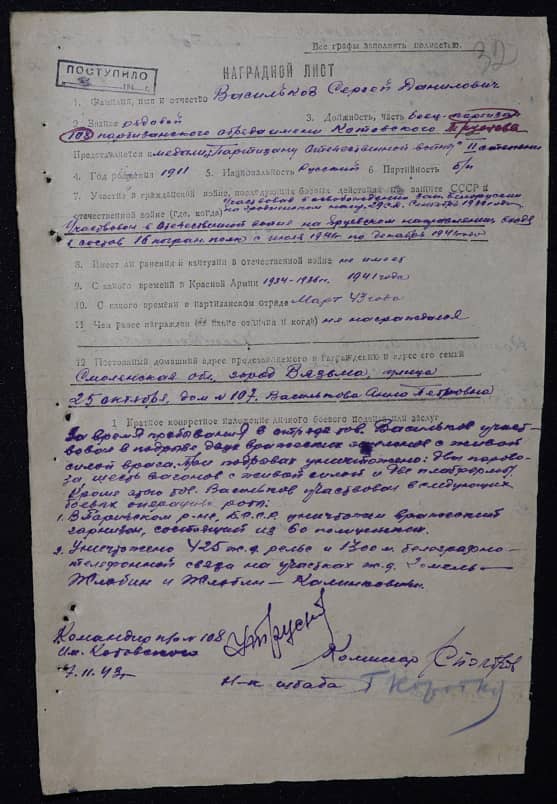 Все графы заполнять полностью.
ПОСТУПИЛО
194 г.
НАГРАДНОЙ ЛИСТ
1. Фамилия, имя и отчество Васильков Сергей Данилович
2. Звание рядовой 3. Должность, часть боец-партизан
108 партизанского отряда имени Котовского
Представляется к медали „Партизану Отечественной войны" II степени
4. Год рождения 1911 5. Национальность Русский 6. Партийность б/п
7. Участие в гражданской войне, последующих боевых действиях по защите СССР и
отечественной войне (где, когда) Участвовал в освобождении
Участвовал в Отечественной войне на направлении
в составе 16 погран. полк с июля 1941 по декабрь 1941 года
8. Имеет ли ранения и контузии в отечественной войне не имеет
9. С какого времени в Красной Армии 1934-1936 г. 1941 года
10. С какого времени в партизанском отряде Март 43 года
11. Чем ранее награжден (за какие отличия и когда) не награждался
12. Постоянный домашний адрес представляемого к награждению и адрес его семьи
Смоленская обл, город Вязьма улица
25 октября, дом № 107. Василькова Анна Петровна
1. Краткое конкретное изложение личного боевого подвига или заслуг
За время пребывания в отряде тов. Васильков участ-
вовал в подрыве двух вражеских эшелонов с живой
силой врага. При подрывах уничтожено: два парово-
за, шесть вагонов с живой силой и две платформы.
Кроме этого тов. Васильков участвовал в следующих
боевых операциях
1. В р-не, Б.С.С.Р. уничтожен вражеский
гарнизон, состоящий из 60 полицейских.
2. Уничтожено 425 ж.д. рельс и 1300 м. телеграфно-
телефонной связи на участках ж.д. Гомель-
Жлобин и Жлобин-Калинковичи.
Командир п/о № 108
им. Котовского
Комиссар
7.11.43 г.
Н-к штаба